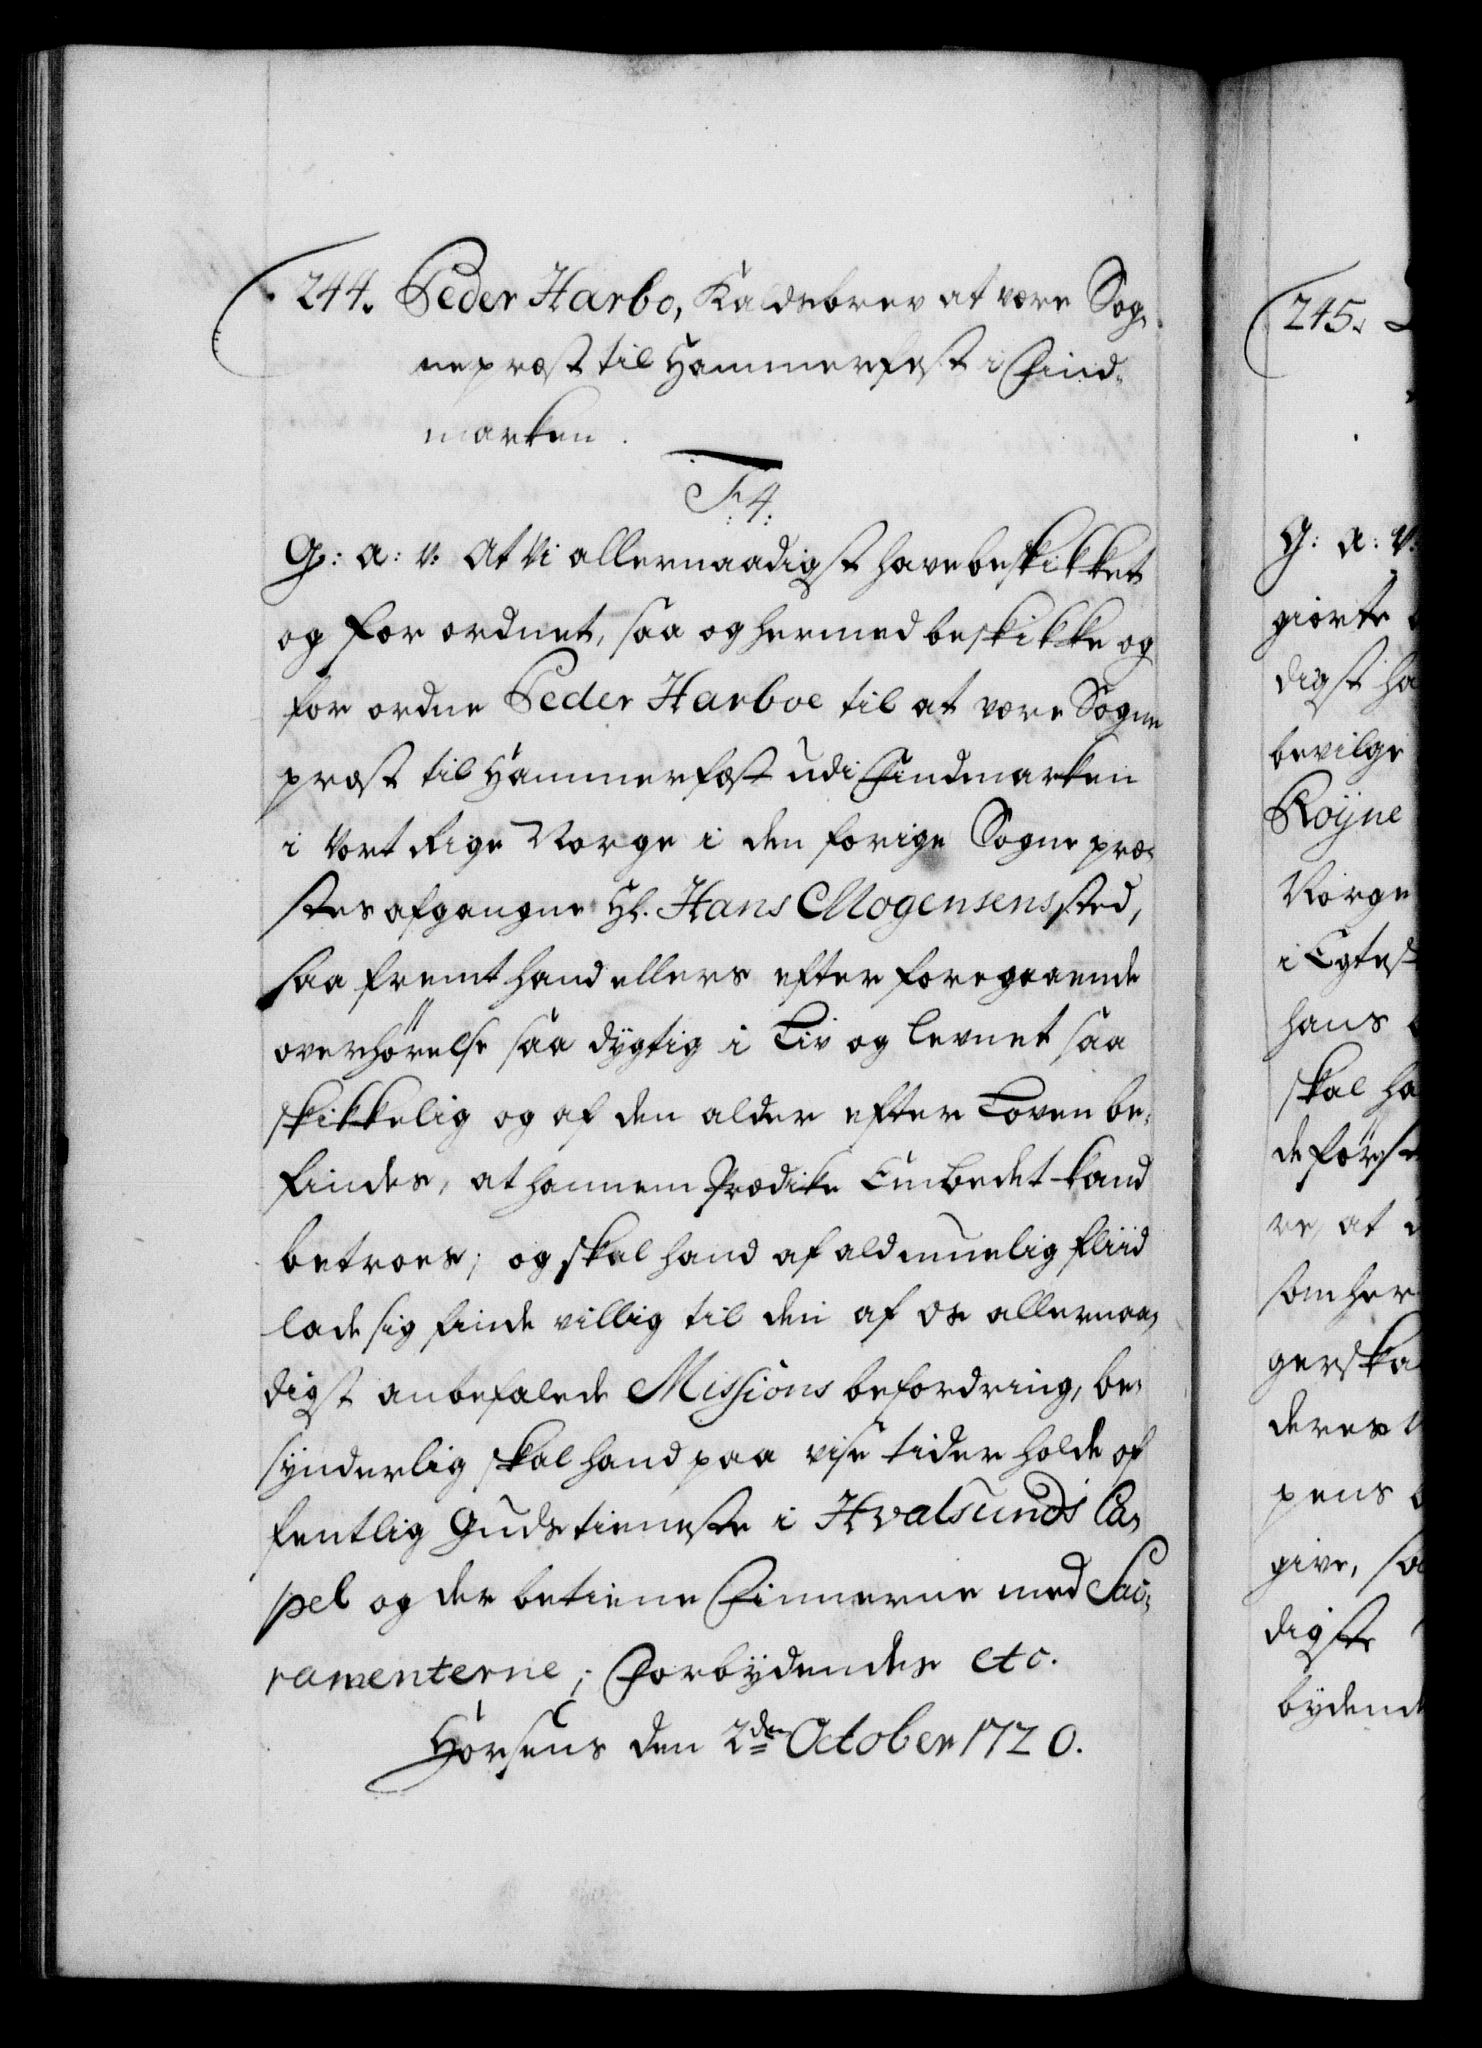 244. Peder Harbo, Kaldsbrev at være Sog-
nepræst til Hammerfest i Find-
marken.
F:4:
G: a: v: At Vi allernaadigst have beskikket
og forordnet, saa og hermed beskikke og
forordne Peder Harboe til at være Sogne
præst til Hammerfæst udi Findmarken
i Vort Rige Norge i den forige Sognepræ-
stes afgangne Hr. Hans Mogensens sted,
saa fremt hand ellers efter foregaaende
overhørelse saa dygtig i Liv og levnet saa
skikkelig og af den alder efter Loven be-
findes, at hannem Prædike Embedet kand
betroes; og skal hand af aldmuelig fliid
lade sig finde villig til den af os allernaa-
digst anbefalede Missions befordring, be-
synderlig skal hand paa visse tider holde of
fentlig Gudstieneste i Hvalsunds Ca-
pel og der betiene Finnerne med Sac-
ramenterne; Forbydendes etc.
Horsens den 2den October 1720.
245.
G: a: v:
giørte
digst ha
bevilge
Røyne
Norge
i Egtesk
hans
skal ha
de først
re, at
som her
gerska
deres
pens
give, sa
digste
bydend